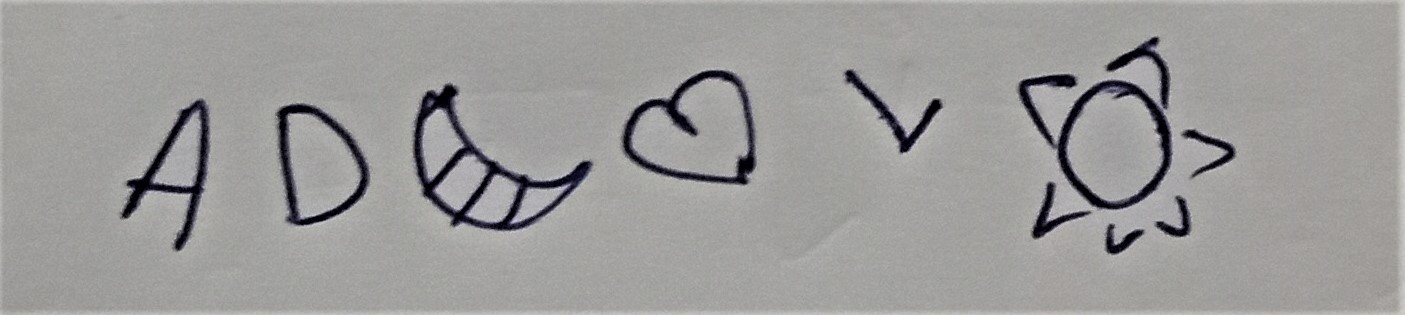 A D V